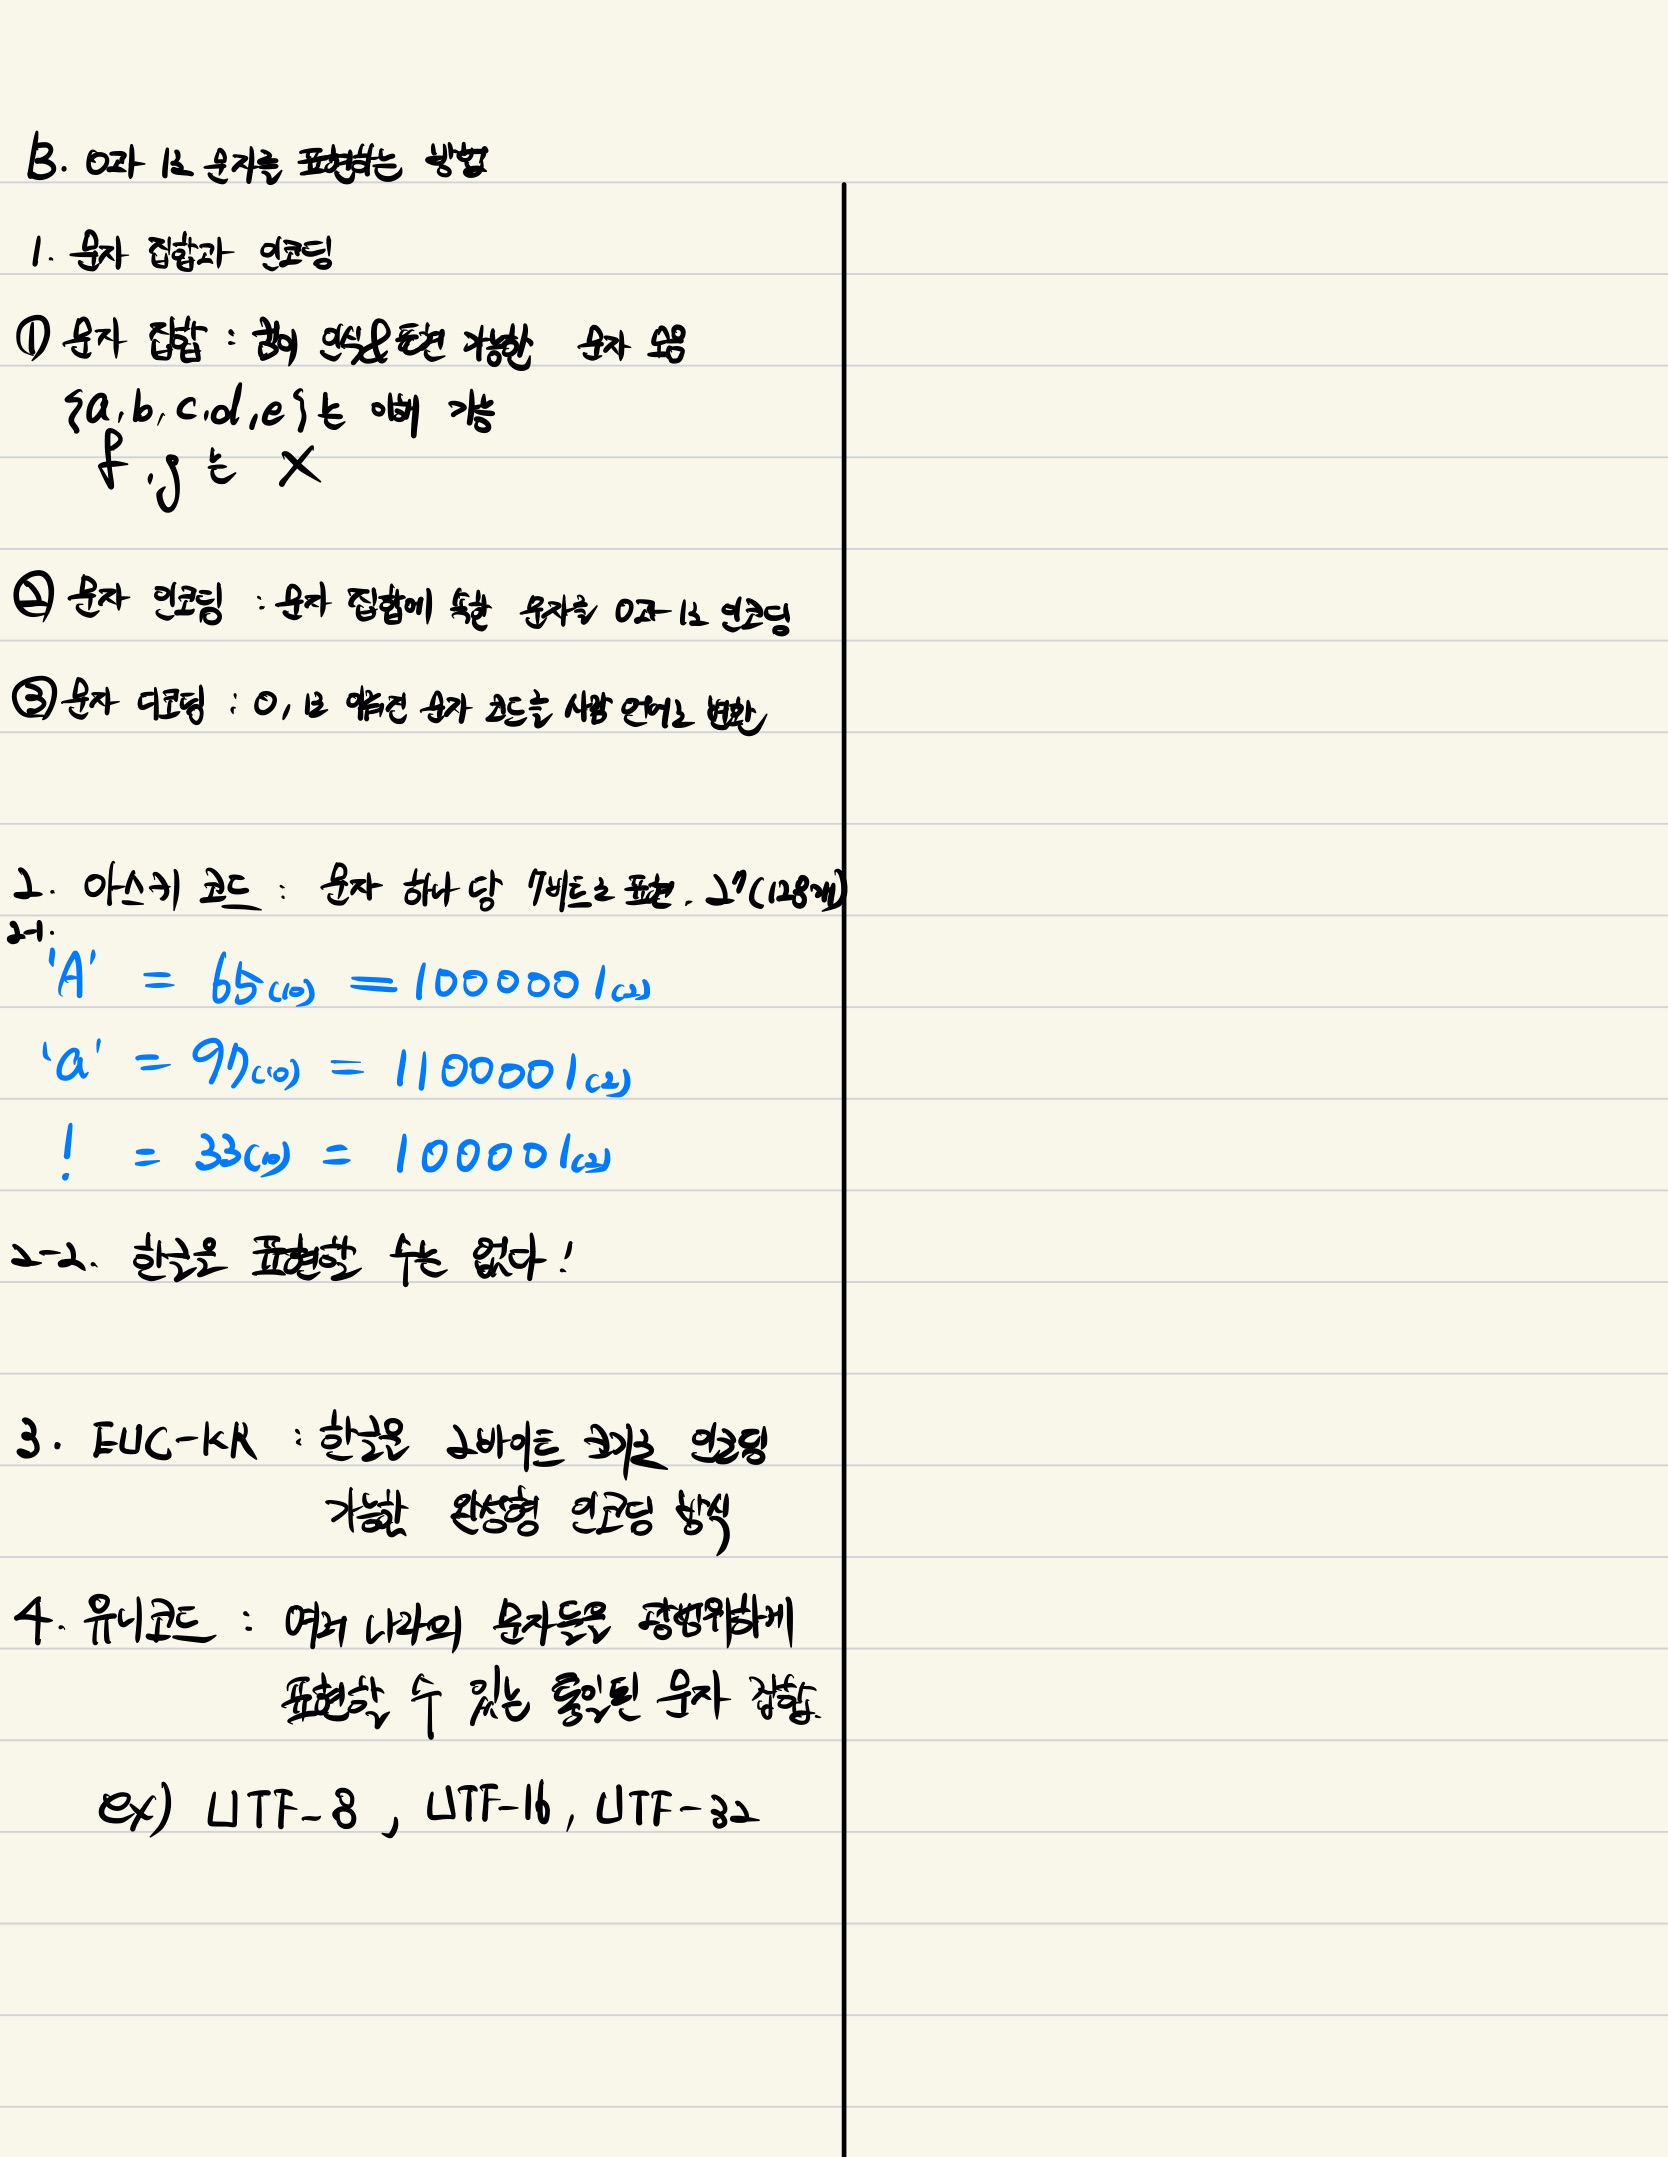 B. 0과 1로 문자를 표현하는 방법
1. 문자 집합과 인코딩
① 문자 집합 : 컴이 인식&표현 가능한 문자 모음
{a, b, c, d, e}는 이해 가능
f, g는 X
② 문자 인코딩 : 문자 집합에 속한 문자를 0과 1로 인코딩
③ 문자 디코딩 : 0, 1로 이루어진 문자 코드를 사람 언어로 변환
2. 아스키 코드 : 문자 하나 당 7비트로 표현. 2⁷(128개)
2-1.
'A' = 65(10) = 1000001(2)
'a' = 97(10) = 1100001(2)
! = 33(10) = 100001(2)
2-2. 한글은 표현할 수는 없다!
3. EUC-KR : 한글은 2바이트 크기로 인코딩
가능한 완성형 인코딩 방식
4. 유니코드 : 여러 나라의 문자들을 광범위하게
표현할 수 있는 통일된 문자 집합.
ex) UTF-8, UTF-16, UTF-32